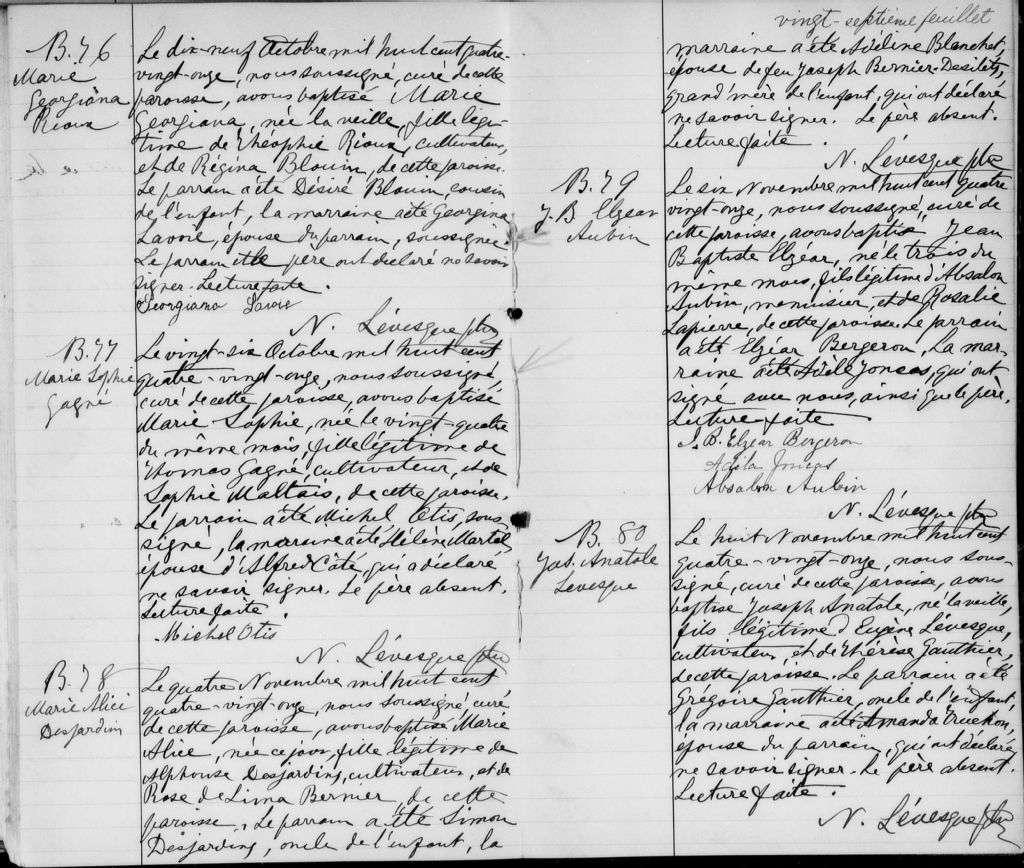 B. 76
Marie
Georgiana
Rioux
Le dix-neuf Octobre mil huit cent quatre-
vingt-onze, nous soussigné, curé de cette
paroisse, avons baptisé Marie
Georgiana, née la veille, fille légi-
time de Théophie Rioux, cultivateur,
et de Régina Blouin, de cette paroisse.
Le parrain a été Désiré Blouin, cousin
de l'enfant, la marraine a été Georgina
Lavoie, épouse du parrain, soussignée.
Le parrain et le père ont déclaré ne savoir
signer. Lecture faite.
Georgiana Lavoie
N. Lévesque ptre
B. 77
Marie Sophie
Gagné
Le vingt-six Octobre mil huit cent
quatre-vingt-onze, nous soussigné,
curé de cette paroisse, avons baptisé
Marie Sophie, née le vingt-quatre
du même mois, fille légitime de
Thomas Gagné, cultivateur, et de
Sophie Maltais, de cette paroisse.
Le parrain a été Michel Otis, sous-
signé, la marraine a été Hélène Martel,
épouse d'Alfred Côté, qui a déclaré
ne savoir signer. Le père absent.
Lecture faite
Michel Otis
N. Lévesque ptre
B. 78
Marie Alice
Desjardins
Le quatre Novembre mil huit cent
quatre-vingt-onze, nous soussigné, curé
de cette paroisse, avons baptisé Marie
Alice, née ce jour, fille légitime de
Alphonse Desjardins, cultivateur, et de
Rose de Lima Bernier, de cette
paroisse. Le parrain a été Simon
Desjardins, oncle de l'enfant, la
vingt-septième feuillet
marraine a été Adéline Blanchet,
épouse de feu Joseph Bernier-Desilets,
grand'mère de l'enfant, qui ont déclaré
ne savoir signer. Le père absent.
Lecture faite.
N. Lévesque ptre
B. 79
J. B Elzear
Aubin
Le six Novembre mil huit cent quatre
vingt-onze, nous soussigné, curé de
cette paroisse, avons baptisé Jean
Baptiste Elzéar, né le trois du
même mois, fils légitime d'Absalon
Aubin, menuisier, et de Rosalie
Lapierre, de cette paroisse. Le parrain
a été Elzéar Bergeron, La mar-
raine a été Adèle Joncas, qui ont
signé avec nous, ainsi que le père.
Lecture faite
J. B. Elzear Bergeron
Adèla Joncas
Absalon Aubin
N. Lévesque ptre
B. 80
Jos. Anatole
Levesque
Le huit Novembre mil huit cent
quatre-vingt-onze, nous sous-
signé, curé de cette paroisse, avons
baptisé Joseph Anatole, né la veille,
fils légitime d'Eugène Lévesque,
cultivateur, et de Thérèse Gauthier,
de cette paroisse. Le parrain a été
Grégoire Gauthier, oncle de l'enfant,
la marraine a été Amanda Truchon,
épouse du parrain, qui ont déclaré
ne savoir signer. Le père absent.
Lecture faite.
N. Lévesque ptre